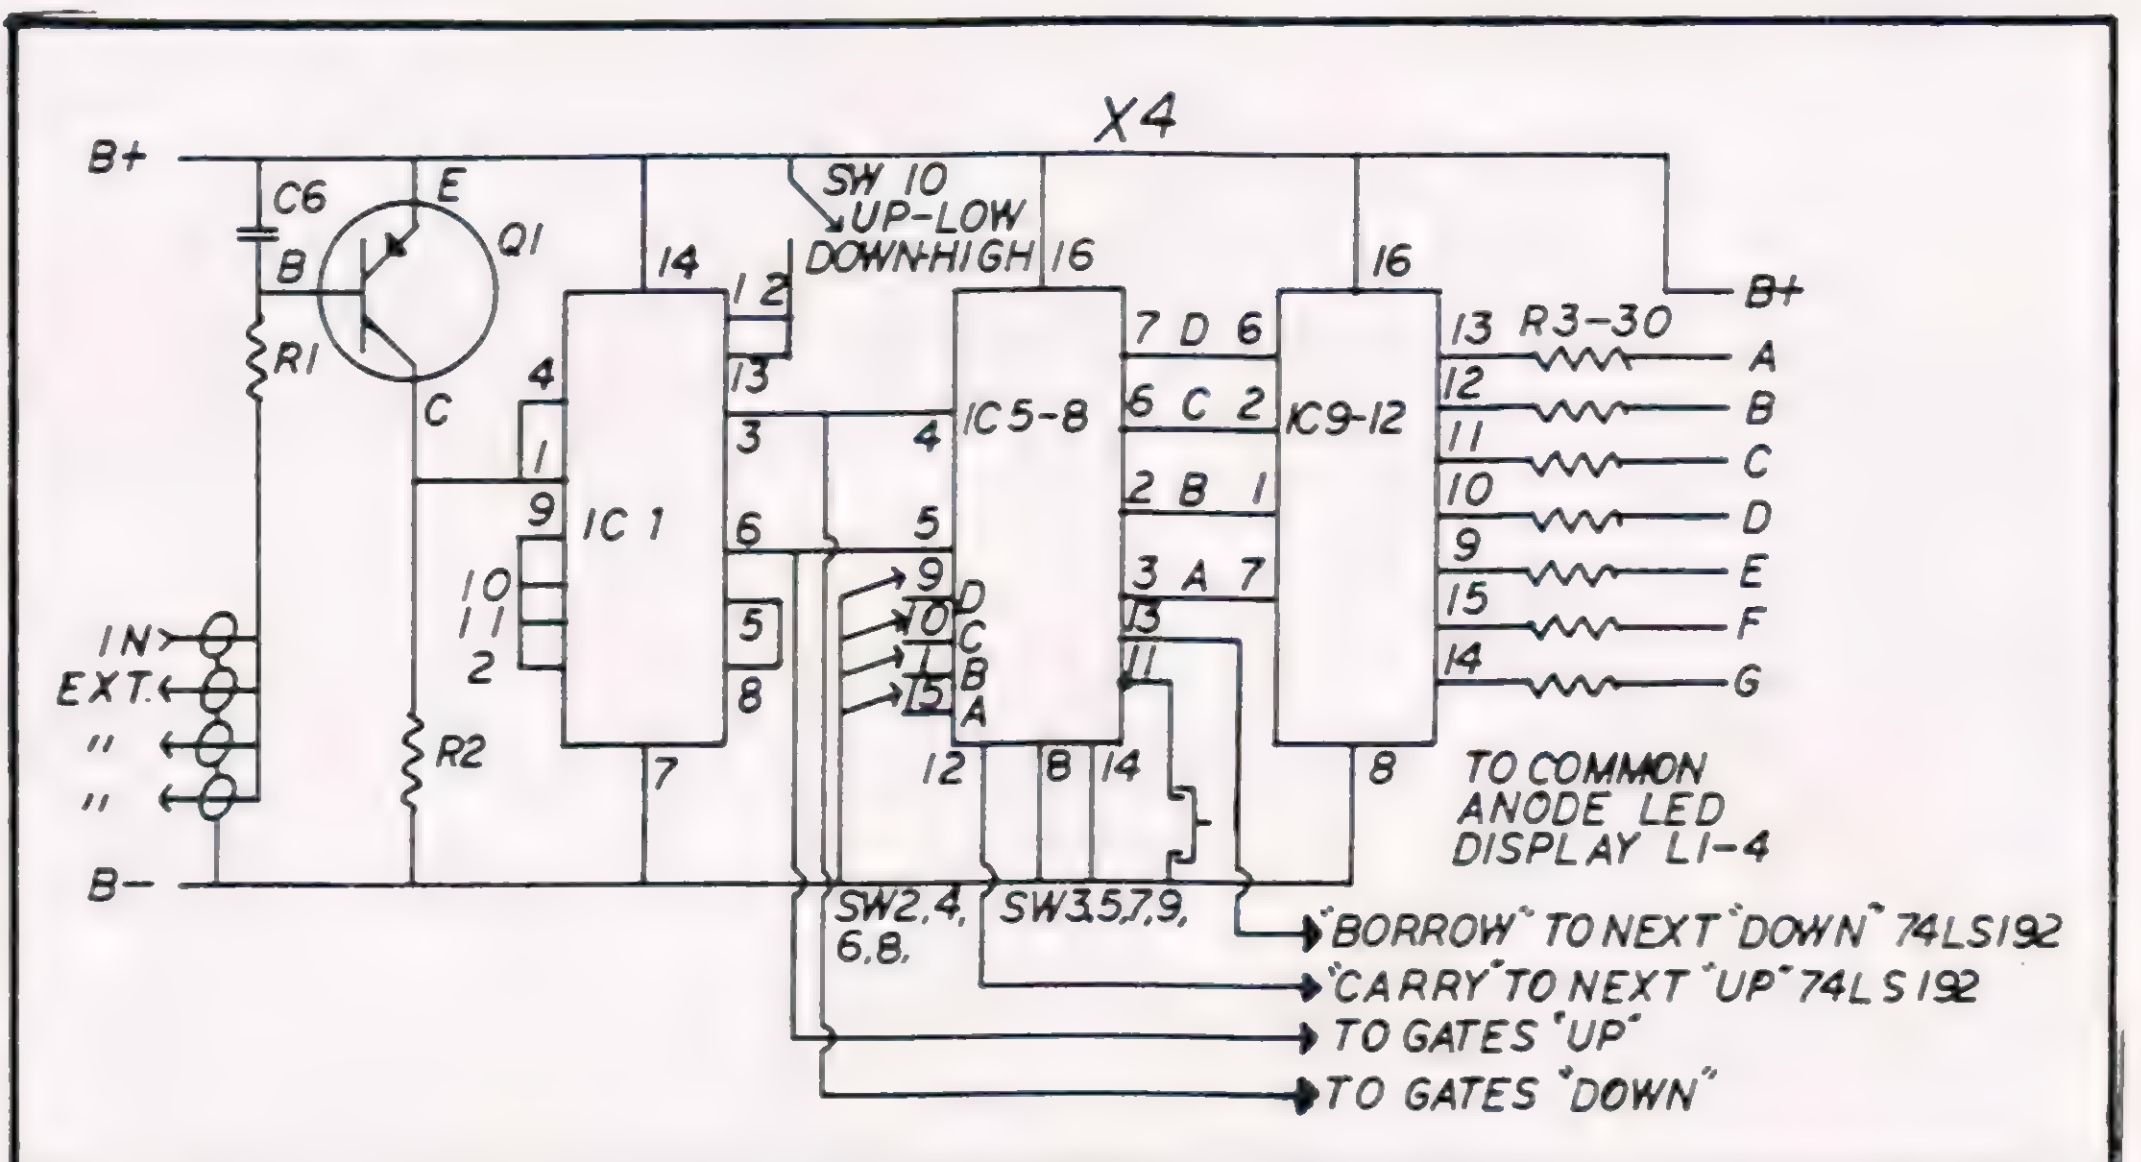 X4
B+
C6
E
B
Q1
R1
C
R2
IN
EXT.
"
"
B-
SW 10
UP-LOW
DOWN-HIGH
14
12
13
4
1
9
10
11
2
IC 1
3
6
5
8
7
16
4
5
9 D
10 C
1 B
15 A
IC5-8
12
8
14
7 D 6
6 C 2
2 B 1
3 A 7
13
11
16
IC9-12
8
B+
13 R3-30 A
12 B
11 C
10 D
9 E
15 F
14 G
TO COMMON
ANODE LED
DISPLAY L1-4
SW2,4,
6,8,
SW3,5,7,9,
"BORROW" TO NEXT "DOWN" 74LS192
"CARRY" TO NEXT "UP" 74LS192
TO GATES "UP"
TO GATES "DOWN"